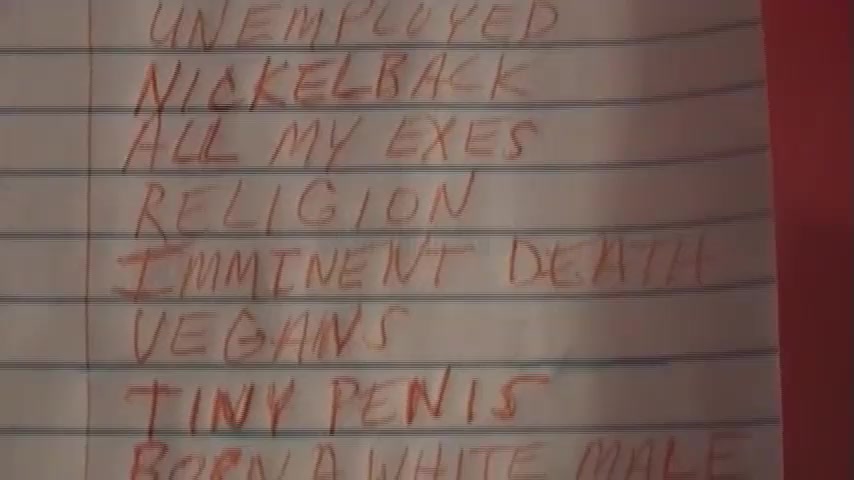 UNEMPLOYED
NICKELBACK
ALL MY EXES
RELIGION
IMMINENT DEATH
VEGANS
TINY PENIS
BORN A WHITE MALE